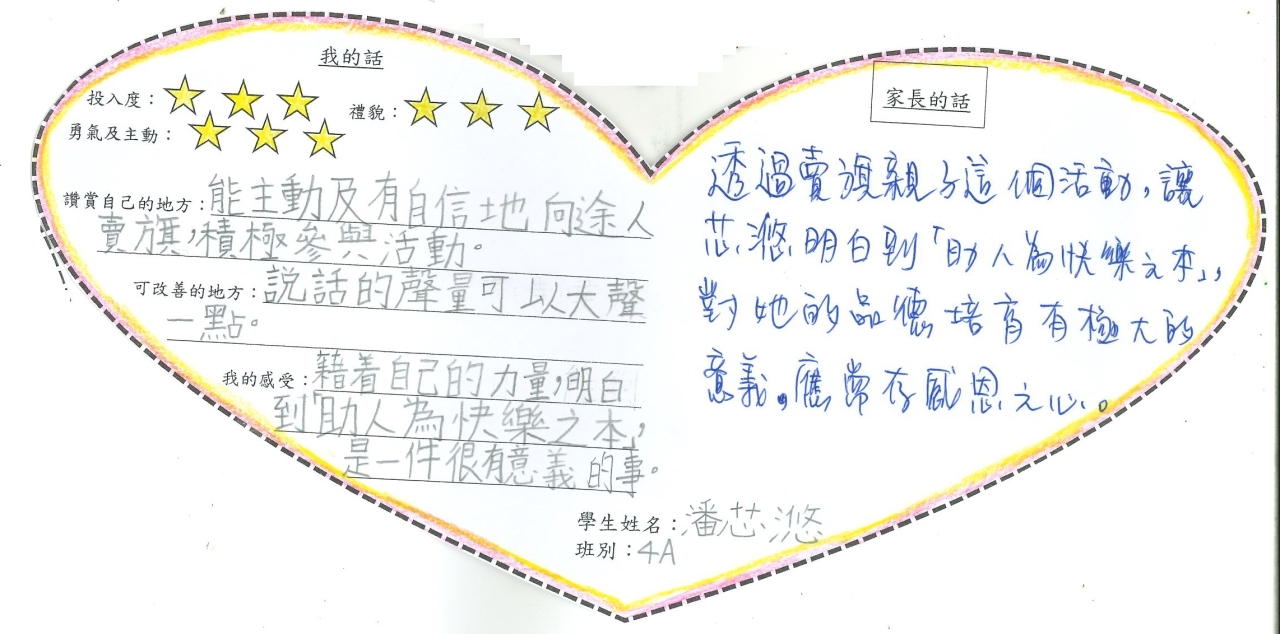 我的話
投入度：
禮貌：
勇氣及主動：
讚賞自己的地方：能主動及有自信地向途人
賣旗，積極參與活動。
可改善的地方：說話的聲量可以大聲
一點。
我的感受：藉着自己的力量，明白
到「助人為快樂之本」，
是一件很有意義的事。
家長的話
透過賣旗親子這個活動，讓
芯滺明白到「助人為快樂之本」，
對她的品德培育有極大的
意義。應常存感恩之心。
學生姓名：潘芯滺
班別：4A